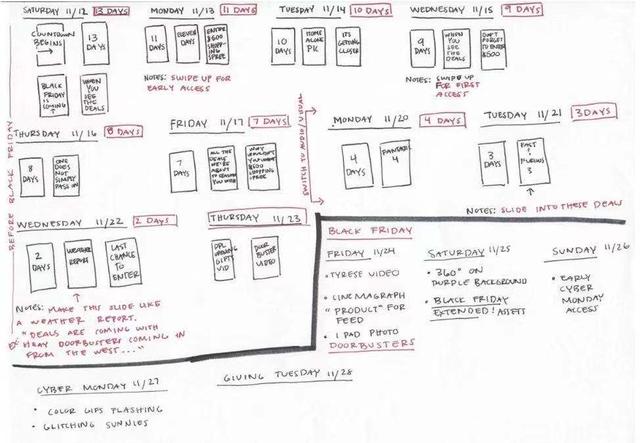 SATURDAY 11/12 13 DAYS
COUNTDOWN
BEGINS
13
DAYS
BLACK
FRIDAY
IS
COMING
WHEN
YOU
SEE
THE
DEALS
MONDAY 11/13 11 DAYS
11
DAYS
ELEVEN
DAYS
ENTER
$600
SHOPP-
ING
SPREE
NOTES: SWIPE UP FOR
EARLY ACCESS
TUESDAY 11/14 10 DAYS
10
DAYS
HOME
ALONE
PK
ITS
GETTING
CLOSER
WEDNESDAY 11/15 9 DAYS
9
DAYS
WHEN
YOU
SEE
THE
DEALS
DON'T
FORGET
TO ENTER
$500
NOTES: SWIPE UP
FOR FIRST
ACCESS
THURSDAY 11/16 8 DAYS
8
DAYS
ONE
DOES
NOT
SIMPLY
PASS IN
FRIDAY 11/17 7 DAYS
7
DAYS
ALL THE
DEALS
WE'RE
ABOUT
TO
WHY
YOU WANT
$600
SHOPPING
SPREE
SWITCH TO AUDIO/VISUAL
MONDAY 11/20 4 DAYS
4
DAYS
4
TUESDAY 11/21 3 DAYS
3
DAYS
FAST
&
FURIOUS
3
NOTES: SLIDE INTO THESE DEALS
BEFORE BLACK FRIDAY
WEDNESDAY 11/22 2 DAYS
2
DAYS
WEATHER
REPORT
LAST
CHANCE
TO
ENTER
NOTES: MAKE THIS SLIDE LIKE
A WEATHER REPORT.
"DEALS ARE COMING WITH
DOORBUSTERS COMING IN
FROM THE WEST..."
THURSDAY 11/23
OPENING
GIFTS
VID
DOOR
BUSTER
VIDEO
BLACK FRIDAY
FRIDAY 11/24
• TYRESE VIDEO
• CINEMAGRAPH
"PRODUCT" FOR
FEED
• IPAD PHOTO
DOORBUSTERS
SATURDAY 11/25
• 360° ON
PURPLE BACKGROUND
• BLACK FRIDAY
EXTENDED! ASSETS
SUNDAY 11/26
• EARLY
CYBER
MONDAY
ACCESS
CYBER MONDAY 11/27
• COLOR GIFS FLASHING
• GLITCHING SUNNIES
GIVING TUESDAY 11/28